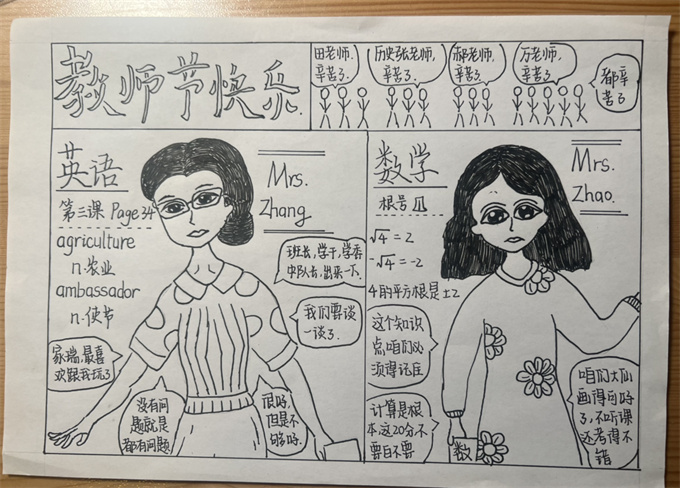 教师节快乐.
田老师,
辛苦了.
历史张老师,
辛苦了.
郝老师,
辛苦了.
万老师,
辛苦了.
都辛
苦了
英语
Mrs.
Zhang
第三课 Page 34
agriculture
n.农业
ambassador
n.使节
班长,学干,学委
中队长,出来一下.
我们要谈
一谈了.
家瑞,最喜
欢跟我玩了
没有问
题就是
都有问题
很好,
但是不
够好.
数学
Mrs.
Zhao.
根号
√4 = 2
-√4 = -2
4的平方根是 ±2
这个知识
点咱们必
须得记住
计算是根
本,这20分不
要白不要
咱们大仙
画得可好
了,不听课
还考得不
错
数